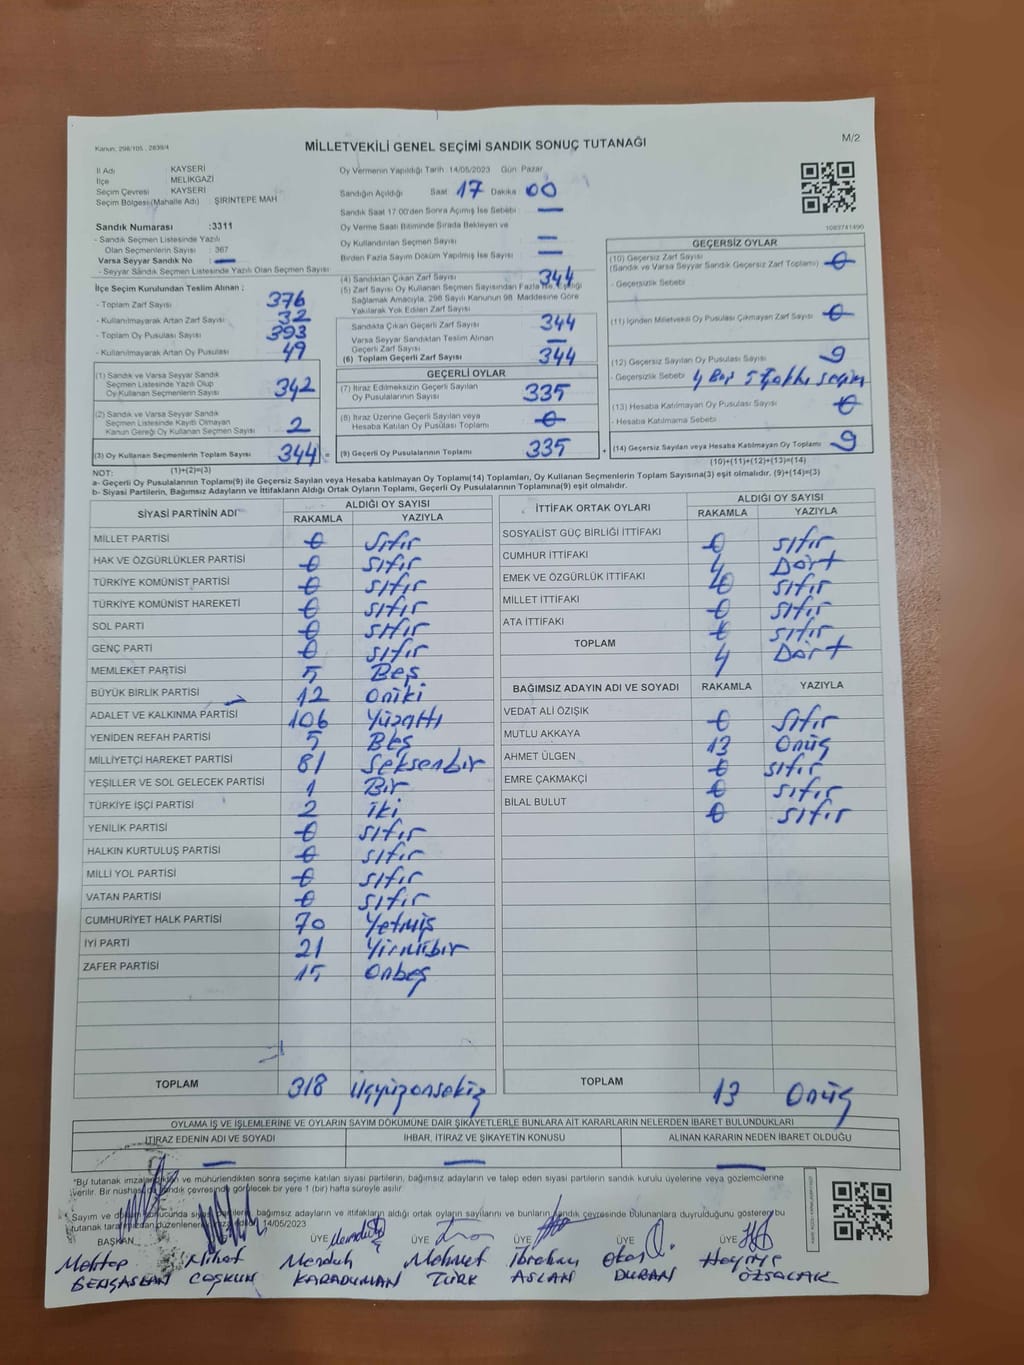 Kanun: 298/105 , 2839/4
MİLLETVEKİLİ GENEL SEÇİMİ SANDIK SONUÇ TUTANAĞI
M/2
İl Adı KAYSERİ
İlçe MELİKGAZİ
Seçim Çevresi KAYSERİ
Seçim Bölgesi (Mahalle Adı) ŞİRİNTEPE MAH
Oy Vermenin Yapıldığı Tarih 14/05/2023 Gün Pazar
Sandığın Açıldığı Saat 17 Dakika 00
Sandık Saat 17 00'den Sonra Açımış İse Sebebi —
Oy Verme Saati Bitiminde Sırada Bekleyen ve
Oy Kullandırılan Seçmen Sayısı —
Birden Fazla Sayım Döküm Yapılmış İse Sayısı —
1083741490
Sandık Numarası :3311
- Sandık Seçmen Listesinde Yazılı
Olan Seçmenlerin Sayısı : 367
Varsa Seyyar Sandık No —
- Seyyar Sandık Seçmen Listesinde Yazılı Olan Seçmen Sayısı
İlçe Seçim Kurulundan Teslim Alınan ;
- Toplam Zarf Sayısı 376
- Kullanılmayarak Artan Zarf Sayısı 32
- Toplam Oy Pusulası Sayısı 393
- Kullanılmayarak Artan Oy Pusulası 49
(1) Sandık ve Varsa Seyyar Sandık
Seçmen Listesinde Yazılı Olup
Oy Kullanan Seçmenlerin Sayısı 342
(2) Sandık ve Varsa Seyyar Sandık
Seçmen Listesinde Kayıtlı Olmayan
Kanun Gereği Oy Kullanan Seçmen Sayısı 2
(3) Oy Kullanan Seçmenlerin Toplam Sayısı 344 =
(1)+(2)=(3)
(4) Sandıktan Çıkan Zarf Sayısı 344
(5) Zarf Sayısı Oy Kullanan Seçmen Sayısından Fazla ise, Eşitliği
Sağlamak Amacıyla, 298 Sayılı Kanunun 98. Maddesine Göre
Yakılarak Yok Edilen Zarf Sayısı
Sandıkta Çıkan Geçerli Zarf Sayısı 344
Varsa Seyyar Sandıktan Teslim Alınan
Geçerli Zarf Sayısı —
(6) Toplam Geçerli Zarf Sayısı 344
GEÇERLİ OYLAR
(7) İtiraz Edilmeksizin Geçerli Sayılan
Oy Pusulalarının Sayısı 335
(8) İtiraz Üzerine Geçerli Sayılan veya
Hesaba Katılan Oy Pusulası Toplamı 0
(9) Geçerli Oy Pusulalarının Toplamı 335 +
GEÇERSİZ OYLAR
(10) Geçersiz Zarf Sayısı
(Sandık ve Varsa Seyyar Sandık Geçersiz Zarf Toplamı) 0
- Geçersizlik Sebebi
(11) İçinden Milletvekili Oy Pusulası Çıkmayan Zarf Sayısı 0
(12) Geçersiz Sayılan Oy Pusulası Sayısı 9
- Geçersizlik Sebebi 4 Boş 5 seçim
(13) Hesaba Katılmayan Oy Pusulası Sayısı 0
- Hesaba Katılmama Sebebi
(14) Geçersiz Sayılan veya Hesaba Katılmayan Oy Toplamı 9
(10)+(11)+(12)+(13)=(14)
NOT:
a- Geçerli Oy Pusulalarının Toplamı(9) ile Geçersiz Sayılan veya Hesaba katılmayan Oy Toplamı(14) Toplamları, Oy Kullanan Seçmenlerin Toplam Sayısına(3) eşit olmalıdır. (9)+(14)=(3)
b- Siyasi Partilerin, Bağımsız Adayların ve İttifakların Aldığı Ortak Oyların Toplamı, Geçerli Oy Pusulalarının Toplamına(9) eşit olmalıdır.
SİYASİ PARTİNİN ADI ALDIĞI OY SAYISI
RAKAMLA YAZIYLA
MİLLET PARTİSİ 0 sıfır
HAK VE ÖZGÜRLÜKLER PARTİSİ 0 sıfır
TÜRKİYE KOMÜNİST PARTİSİ 0 sıfır
TÜRKİYE KOMÜNİST HAREKETİ 0 sıfır
SOL PARTİ 0 sıfır
GENÇ PARTİ 0 sıfır
MEMLEKET PARTİSİ 5 Beş
BÜYÜK BİRLİK PARTİSİ 12 Oniki
ADALET VE KALKINMA PARTİSİ 106 Yüzaltı
YENİDEN REFAH PARTİSİ 5 Beş
MİLLİYETÇİ HAREKET PARTİSİ 81 Seksenbir
YEŞİLLER VE SOL GELECEK PARTİSİ 1 Bir
TÜRKİYE İŞÇİ PARTİSİ 2 iki
YENİLİK PARTİSİ 0 sıfır
HALKIN KURTULUŞ PARTİSİ 0 sıfır
MİLLİ YOL PARTİSİ 0 sıfır
VATAN PARTİSİ 0 sıfır
CUMHURİYET HALK PARTİSİ 70 Yetmiş
İYİ PARTİ 21 Yirmibir
ZAFER PARTİSİ 15 Onbeş
TOPLAM 318 Üçyüzonsekiz
İTTİFAK ORTAK OYLARI ALDIĞI OY SAYISI
RAKAMLA YAZIYLA
SOSYALİST GÜÇ BİRLİĞİ İTTİFAKI 0 sıfır
CUMHUR İTTİFAKI 4 Dört
EMEK VE ÖZGÜRLÜK İTTİFAKI 0 sıfır
MİLLET İTTİFAKI 0 sıfır
ATA İTTİFAKI 0 sıfır
TOPLAM 4 Dört
BAĞIMSIZ ADAYIN ADI VE SOYADI RAKAMLA YAZIYLA
VEDAT ALİ ÖZIŞIK 0 sıfır
MUTLU AKKAYA 13 Onüç
AHMET ÜLGEN 0 sıfır
EMRE ÇAKMAKÇİ 0 sıfır
BİLAL BULUT 0 sıfır
TOPLAM 13 Onüç
OYLAMA İŞ VE İŞLEMLERİNE VE OYLARIN SAYIM DÖKÜMÜNE DAİR ŞİKAYETLERLE BUNLARA AİT KARARLARIN NELERDEN İBARET BULUNDUKLARI
İTİRAZ EDENİN ADI VE SOYADI İHBAR, İTİRAZ VE ŞİKAYETİN KONUSU ALINAN KARARIN NEDEN İBARET OLDUĞU
— — —
*Bu tutanak imzalandıktan ve mühürlendikten sonra seçime katılan siyasi partilerin, bağımsız adayların ve talep eden siyasi partilerin sandık kurulu üyelerine veya gözlemcilerine
verilir. Bir nüshası da sandık çevresinde görülecek bir yere 1 (bir) hafta süreyle asılır
Sayım ve döküm sonucunda siyasi partilerin, bağımsız adayların ve ittifakların aldığı ortak oyların sayılarını ve bunların sandık çevresinde bulunanlara duyrulduğunu gösteren bu
tutanak tarafımızdan düzenlenerek imzalandı. 14/05/2023
BAŞKAN ÜYE ÜYE ÜYE ÜYE ÜYE
Mehtap Nihat Memduh Mehmet İbrahim Okan Hayriye
GENÇASLAN COŞKUN KARADUMAN TÜRK ASLAN DURAN ÖZSALAK